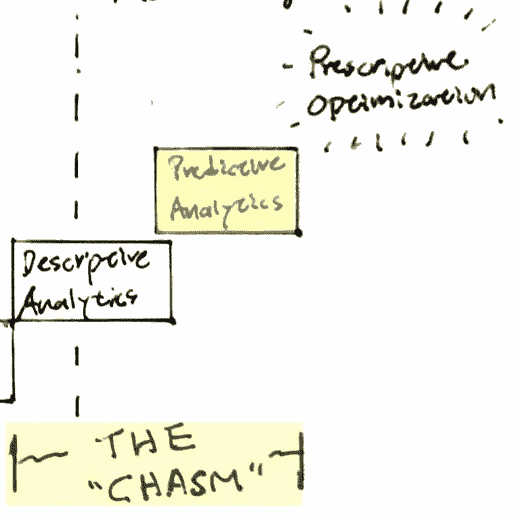 Prescriptive
Optimization
Predictive
Analytics
Descriptive
Analytics
THE
"CHASM"